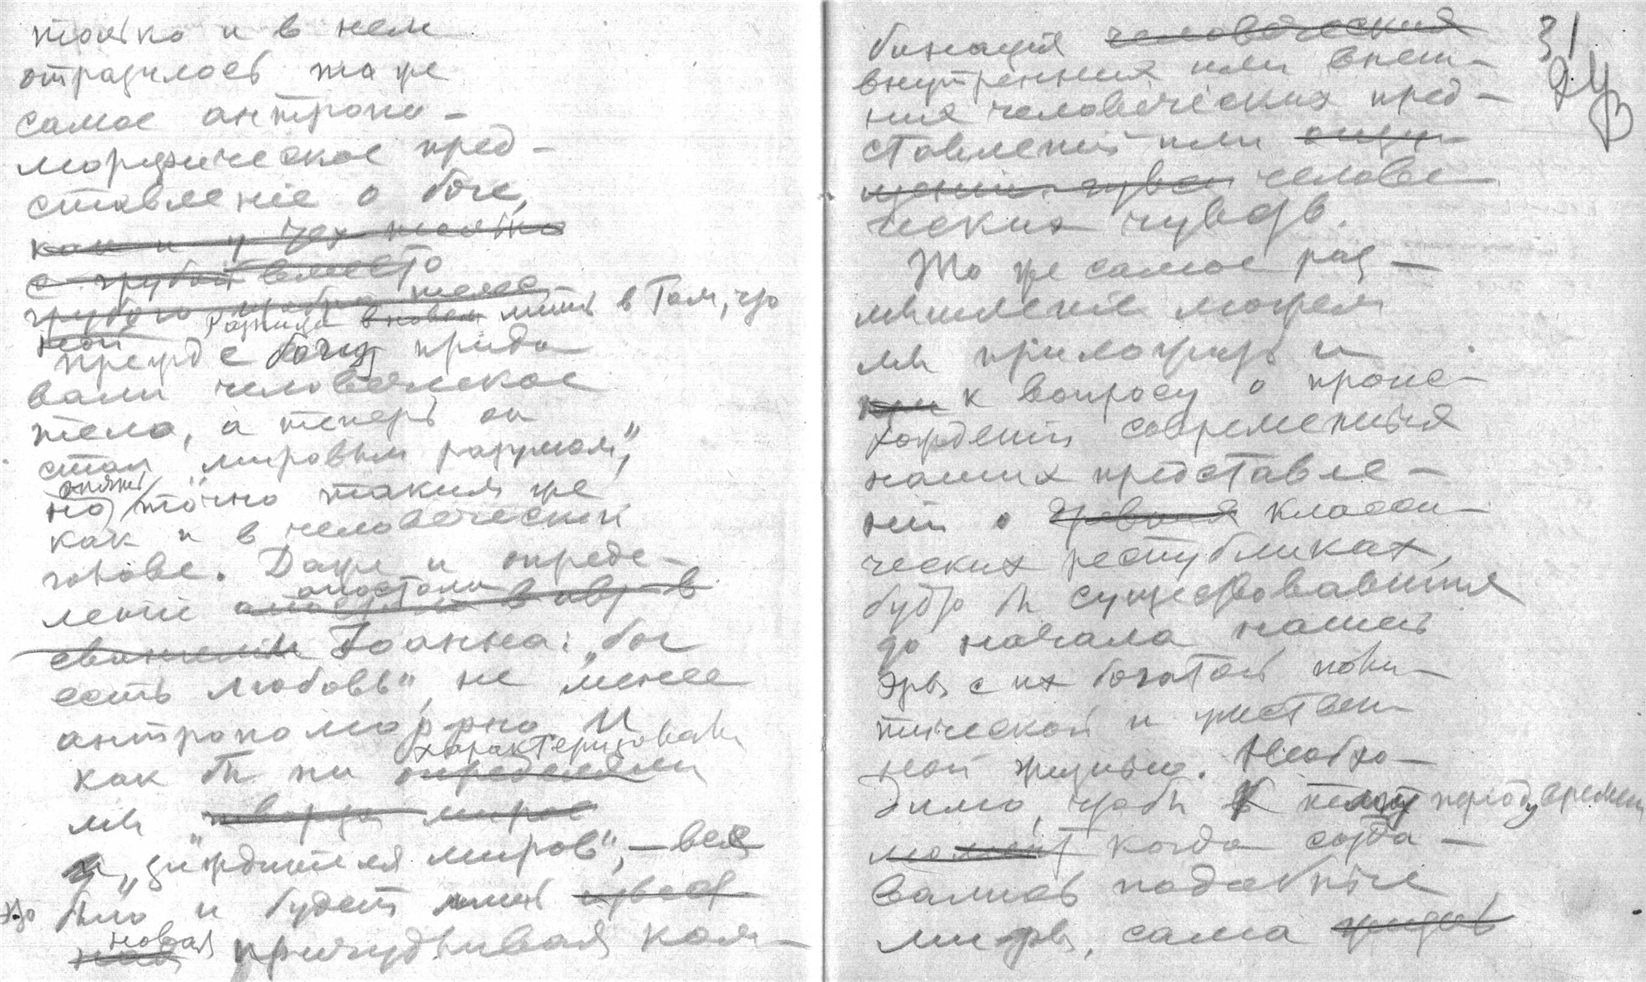 только и в нем
отразилось то же
самое антропо-
морфическое пред-
ставление о боге,
как и у тех только
с грубой вместо
грубого
ной Разница в новом лишь в том, что
прежде богу прида
вали человеческое
тело, а теперь он
стал "мировым разумом",
но опять точно таким же
как и в человеческой
голове. Даже и опреде-
ление апостола
евангелии Иоанна: "бог
есть любовь", не менее
антропоморфно. И
как бы ни определяли характеризовали
мы "творца миров
и "зиждителя миров", — все
это было и будет лишь
новая причудливая ком-
бинация человеческих
внутренних или внеш-
них человеческих пред-
ставлений или ощу-
щений чувств человe
ческих чувств.
То же самое раз-
мышление можем
мы приложить и
при к вопросу о проис-
хождении современных
наших представле-
ний о древних класси-
ческих республиках,
будто бы существовавших
до начала нашей
эры с их богатой поли-
тической и умствен-
ной жизнью. Необхо-
димо, чтобы к тому периоду времени
момент когда созда-
вались подобные
мифы, сама
31